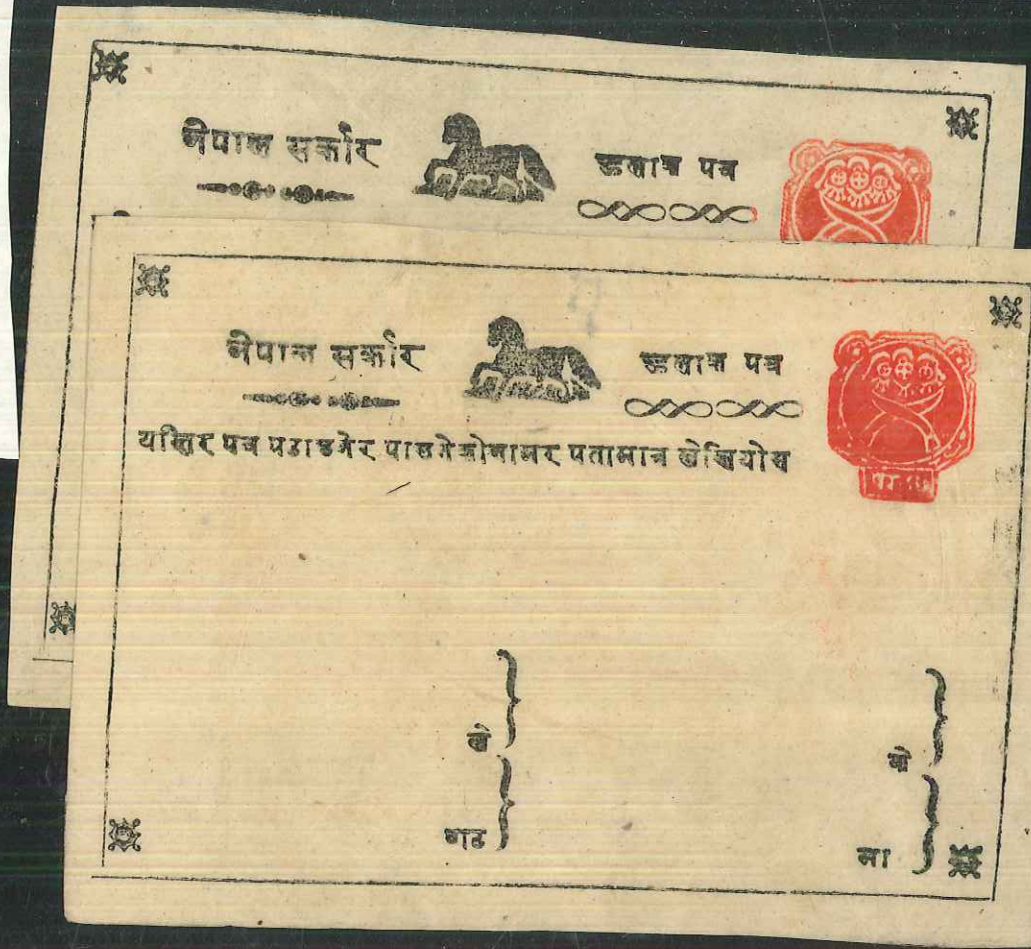 नेपाल सर्कार हुलाक पत्र
नेपाल सर्कार हुलाक पत्र
यस्तिर पत्र पठाउनेर पाउनेकोनामर पतामात्र लेखियोस
ले को
बाट मा